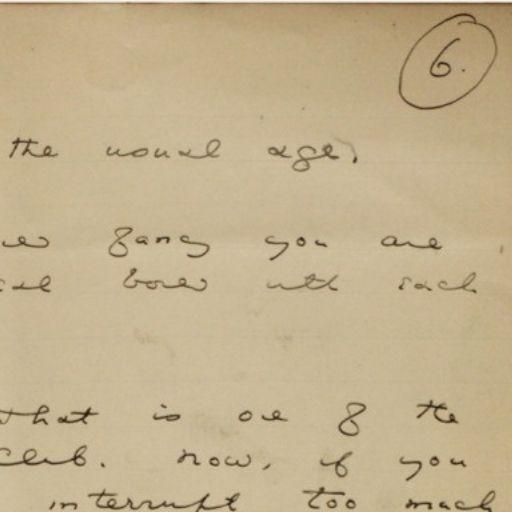 6.
the usual age.
fancy you are
bored with each
That is one of the
Club. Now, if you
interrupt too much